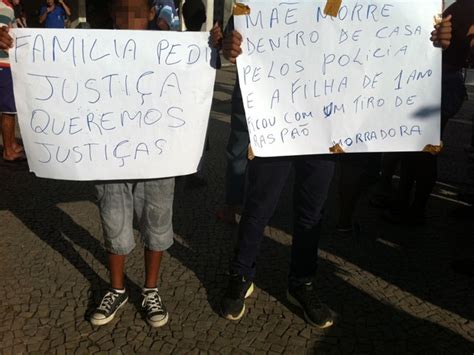 FAMILIA PEDI
JUSTIÇA
QUEREMOS
JUSTIÇAS
MÃE MORRE
DENTRO DE CASA
PELOS POLICIA
E A FILHA DE 1 ANO
FICOU COM UM TIRO DE
RASPÃO
MORRADORA